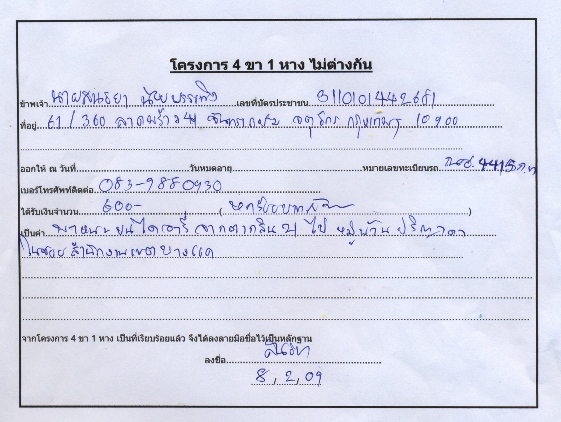 โครงการ 4 ขา 1 หาง ไม่ต่างกัน
ข้าพเจ้า นาย เลขที่บัตรประชาชน
ที่อยู่ 61/360 ลาดพร้าว จตุจักร กรุงเทพฯ 10900
ออกให้ ณ วันที่ วันหมดอายุ หมายเลขทะเบียนรถ 4415
เบอร์โทรศัพท์ติดต่อ 083-9880930
ได้รับเงินจำนวน 600- ( หกร้อยบาทถ้วน )
เป็นค่า พาหนะขน จากตากสิน 21 ไป หมู่บ้าน ปริญาดา
ในซอย สำนักงานเขตบางแค
จากโครงการ 4 ขา 1 หาง เป็นที่เรียบร้อยแล้ว จึงได้ลงลายมือชื่อไว้เป็นหลักฐาน
ลงชื่อ
8, 2, 09